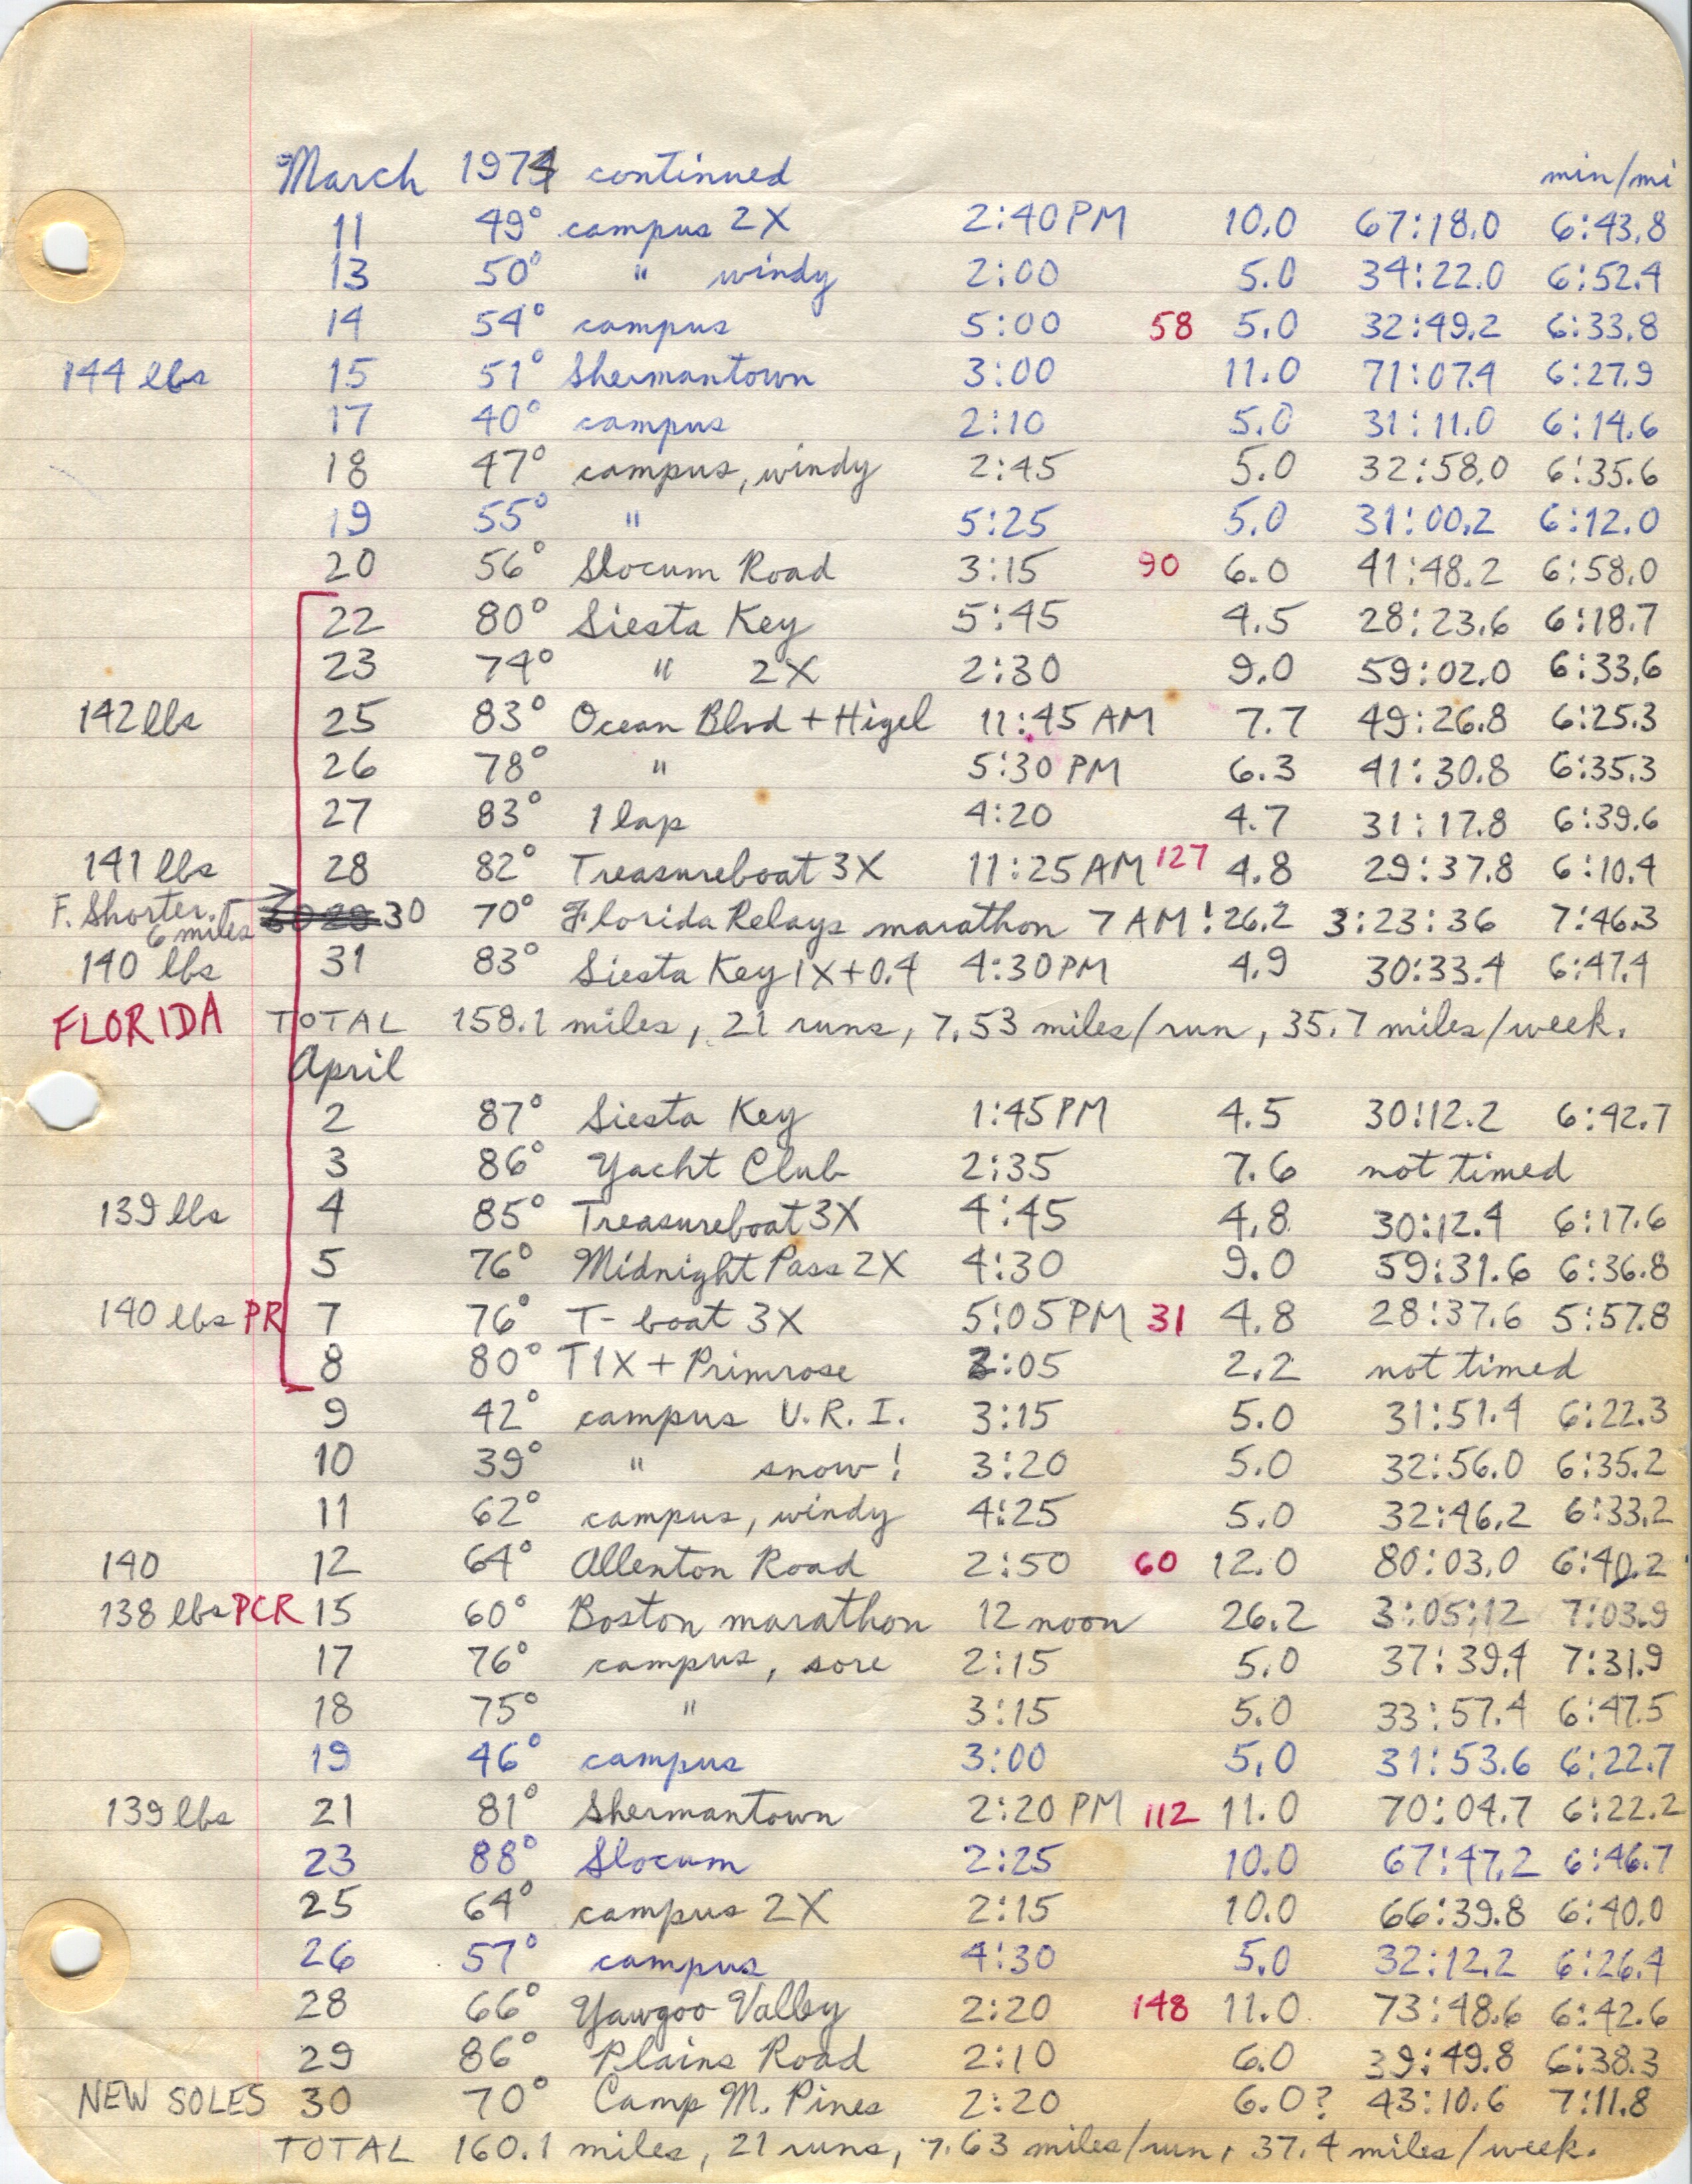 March 1974 continued min/mi
11 49° campus 2X 2:40 PM 10.0 67:18.0 6:43.8
13 50° " windy 2:00 5.0 34:22.0 6:52.4
14 54° campus 5:00 58 5.0 32:49.2 6:33.8
144 lbs 15 51° Shermantown 3:00 11.0 71:07.4 6:27.9
17 40° campus 2:10 5.0 31:11.0 6:14.6
18 47° campus, windy 2:45 5.0 32:58.0 6:35.6
19 55° " 5:25 5.0 31:00.2 6:12.0
20 56° Slocum Road 3:15 90 6.0 41:48.2 6:58.0
22 80° Siesta Key 5:45 4.5 28:23.6 6:18.7
23 74° " 2X 2:30 9.0 59:02.0 6:33.6
142 lbs 25 83° Ocean Blvd + Higel 11:45 AM 7.7 49:26.8 6:25.3
26 78° " 5:30 PM 6.3 41:30.8 6:35.3
27 83° 1 lap 4:20 4.7 31:17.8 6:39.6
141 lbs 28 82° Treasureboat 3X 11:25 AM 127 4.8 29:37.8 6:10.4
F. Shorter. 6 miles 30 70° Florida Relays marathon 7 AM! 26.2 3:23:36 7:46.3
140 lbs 31 83° Siesta Key 1X+0.4 4:30 PM 4.9 30:33.4 6:47.4
FLORIDA TOTAL 158.1 miles, 21 runs, 7.53 miles/run, 35.7 miles/week.
April
2 87° Siesta Key 1:45 PM 4.5 30:12.2 6:42.7
3 86° Yacht Club 2:35 7.6 not timed
139 lbs 4 85° Treasureboat 3X 4:45 4.8 30:12.4 6:17.6
5 76° Midnight Pass 2X 4:30 9.0 59:31.6 6:36.8
140 lbs PR 7 76° T-boat 3X 5:05 PM 31 4.8 28:37.6 5:57.8
8 80° T1X + Primrose 2:05 2.2 not timed
9 42° campus U.R.I. 3:15 5.0 31:51.4 6:22.3
10 39° " snow! 3:20 5.0 32:56.0 6:35.2
11 62° campus, windy 4:25 5.0 32:46.2 6:33.2
140 12 64° Allenton Road 2:50 60 12.0 80:03.0 6:40.2
138 lbs PCR 15 60° Boston marathon 12 noon 26.2 3:05:12 7:03.9
17 76° campus, sore 2:15 5.0 37:39.4 7:31.9
18 75° " 3:15 5.0 33:57.4 6:47.5
19 46° campus 3:00 5.0 31:53.6 6:22.7
139 lbs 21 81° Shermantown 2:20 PM 112 11.0 70:04.7 6:22.2
23 88° Slocum 2:25 10.0 67:47.2 6:46.7
25 64° campus 2X 2:15 10.0 66:39.8 6:40.0
26 57° campus 4:30 5.0 32:12.2 6:26.4
28 66° Yawgoo Valley 2:20 148 11.0 73:48.6 6:42.6
29 86° Plains Road 2:10 6.0 39:49.8 6:38.3
NEW SOLES 30 70° Camp M. Pines 2:20 6.0? 43:10.6 7:11.8
TOTAL 160.1 miles, 21 runs, 7.63 miles/run, 37.4 miles/week.